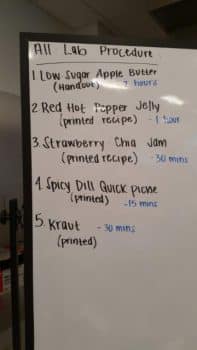 All Lab Procedure
1. Low Sugar Apple Butter
(Handout) 2 hours
2. Red Hot Pepper Jelly
(printed recipe) - 1 hour
3. Strawberry Chia Jam
(printed recipe) - 30 mins
4. Spicy Dill Quick
(printed) - 15 mins
5. Kraut - 30 mins
(printed)